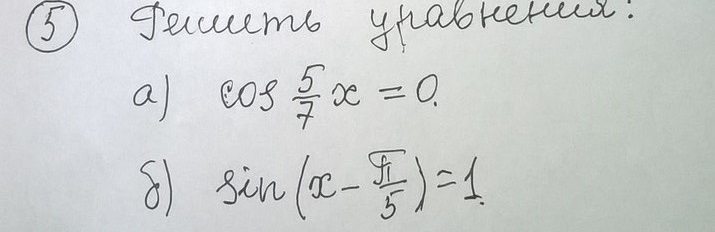 ⑤ Решить уравнения:
а) cos 5/7 x = 0.
б) sin(x - π/5) = 1.